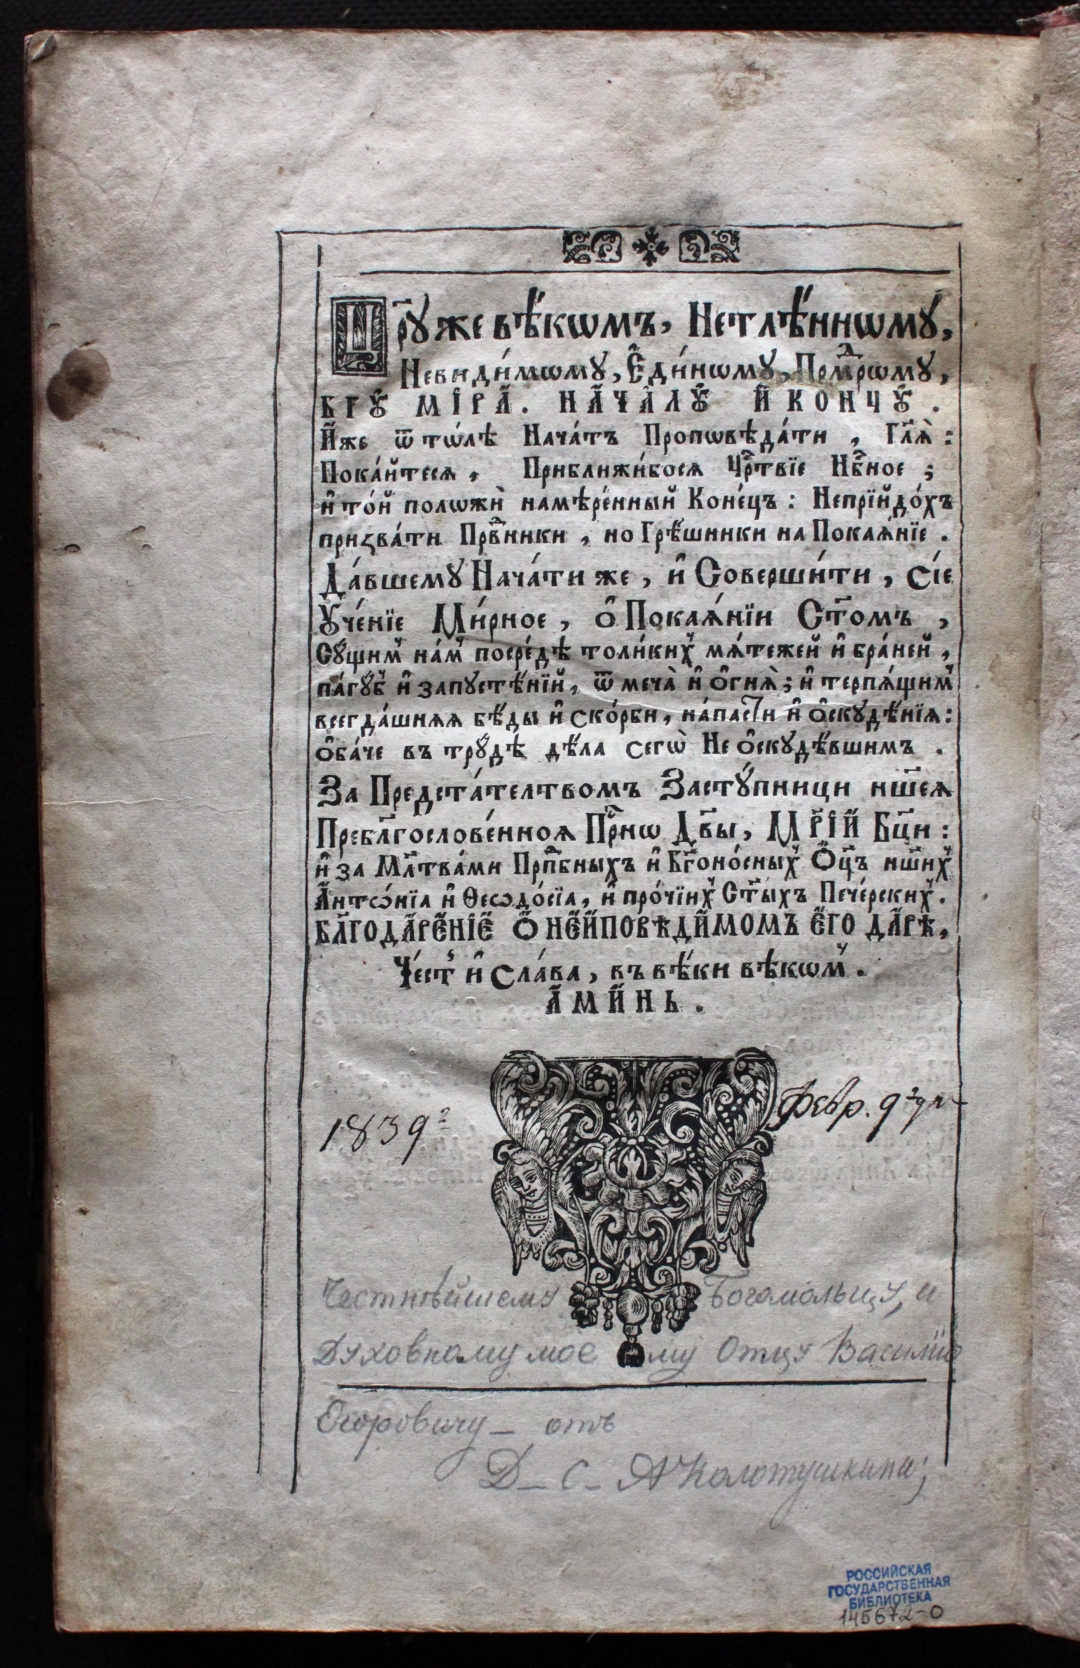 Цр҃ꙋ же вѣ́кѡмъ, Нетлѣ́ннѡмꙋ,
Неви́димѡмꙋ, Є҆ди́нѡмꙋ, Прⷨрѡмꙋ,
БГ҃Ꙋ МІ́РА. НАЧА́ЛꙊ И҆ КОНЦꙊ̀.
И҆́же ѿтѡ́лѣ Нача́тъ Проповѣ́дати, Гл҃ѧ̀:
Пока́йтесѧ, Прибли́жибосѧ Црⷭ҇твїе Нбⷭ҇ное;
и҆ то́й положѝ намѣ́ренный Коне́цъ: Непрїйдо́хъ
призва́ти Првⷣники, но Грѣ́шники на Покаѧ́нїе.
Да́вшемꙋ Нача́ти же, и҆ Соверши́ти, сїе
Ѹ҆че́нїе Ми́рное, ѡ҆ Покаѧ́нїи Ст҃омъ,
Сꙋ́щимⸯ на́мⸯ посре́дѣ толи́кихⸯ мѧ́тежей и҆ бра́ней,
па́гꙋбⸯ и҆ запꙋстѣ́нїй, ѿ меча̀ и҆ о҆гнѧ̀; и҆ терпѧ́щимⸯ
всегда́шнѧѧ бѣ́ды и҆ ско́рби, на́пасти и҆ ѡ҆скꙋдѣ́нїѧ:
ѻ҆ба́че въ трꙋ́дѣ дѣ́ла сегѡ̀ Не ѡ҆скꙋдѣ́вшимъ.
За Предста́телтвомъ Застꙋ́пници нш҃еѧ
Пребл҃гослове́нноѧ Прⷭ҇нѡ Дв҃ы, МР҃ІЙ Бц҃и:
и҆ за Мл҃тва́ми Прпⷣбныхъ и҆ Бг҃оно́сныхⸯ Ѻ҆ц҃ъ нш҃ихⸯ
А҆нтѡ́нїа и҆ Ѳеѡдо́сїа, и҆ про́чїихⸯ Ст҃ы́хъ Пече́рскихⸯ.
БЛ҃ГОДАРЕ́НІЕ Ѻ҆ НЕИ҆ПОВѢДИ́МОМЪ Е҆ГО ДА́РѢ,
Че́стⸯ и҆ Сла́ва, въ вѣ́ки вѣкѡмⸯ.
А҆МИ́НЬ.
1839г Февр. 9г дн
Честнѣйшему Богомольцу, и
Духовному моему Отцу Василію
Егоровичу – отъ
Д – С – А Колотушкина;
РОССИЙСКАЯ
ГОСУДАРСТВЕННАЯ
БИБЛИОТЕКА
145672-0